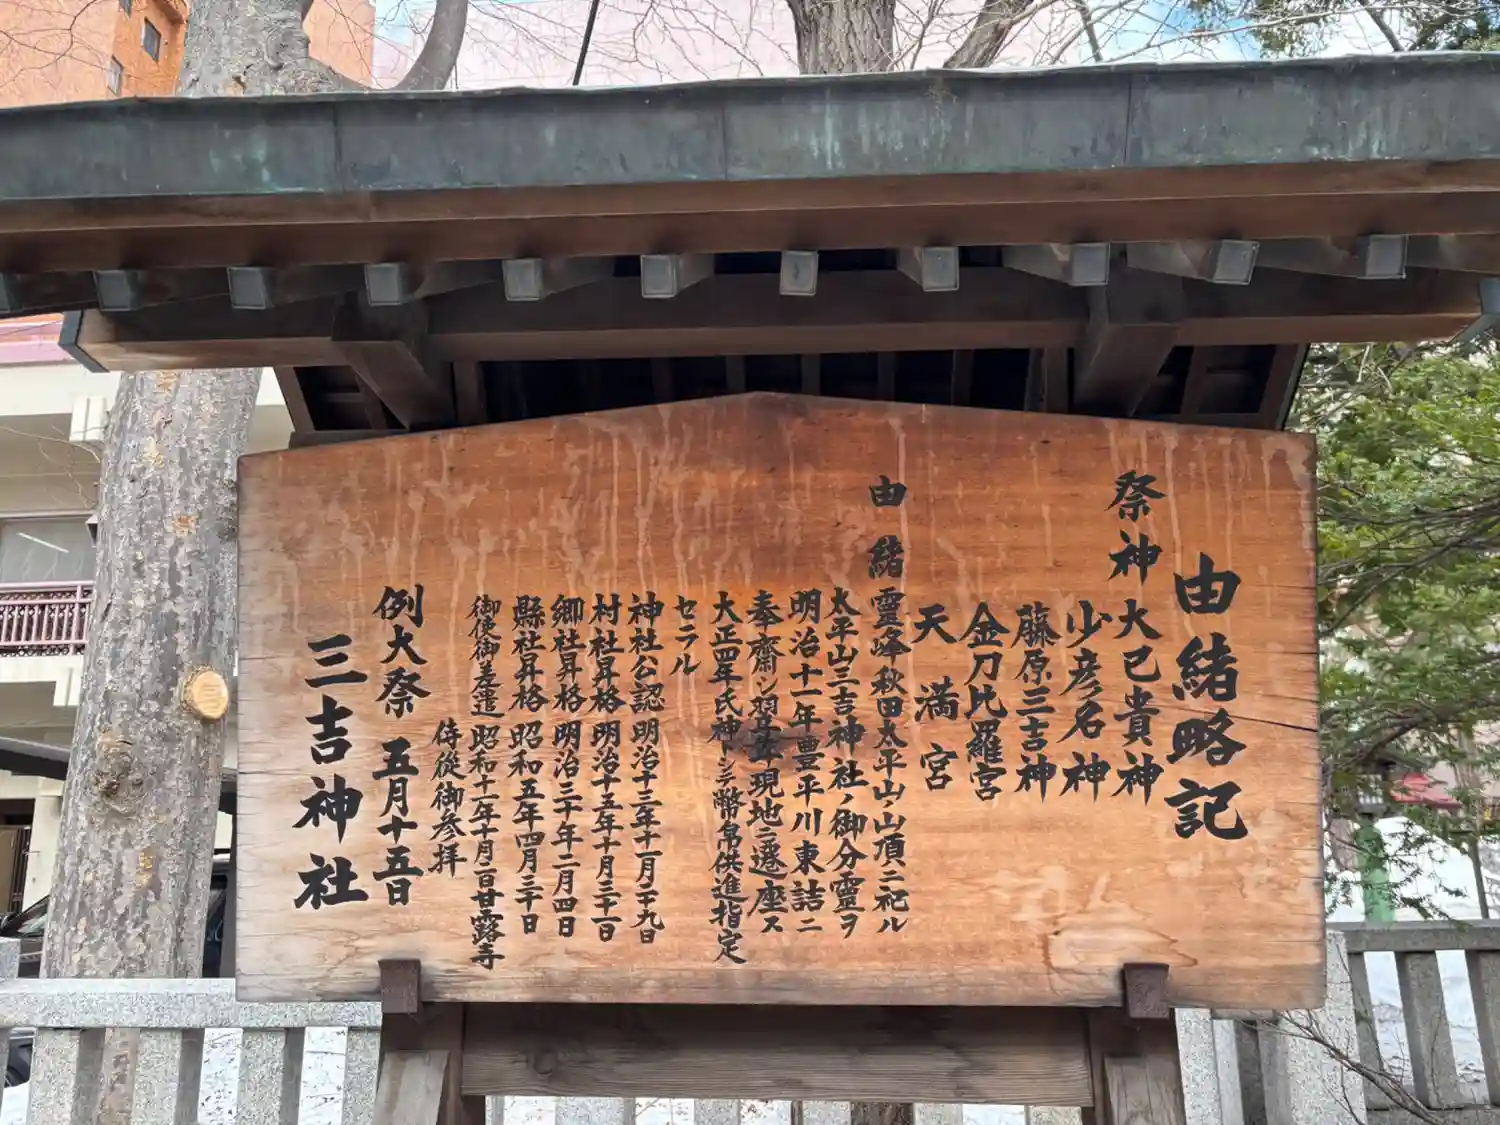 由緒略記
祭神 大己貴神
少彦名神
藤原三吉神
金刀比羅宮
天満宮
由緒 霊峰秋田太平山ノ山頂ニ祀ル
太平山三吉神社ノ御分霊ヲ
明治十一年豊平川東詰ニ
奉齋シ翌年現地ニ遷座ス
大正四年氏神トシテ幣帛供進指定
セラル
神社公認 明治十三年十一月二十九日
村社昇格 明治十五年十月三十一日
郷社昇格 明治三十年二月四日
縣社昇格 昭和五年四月三十日
御使御差遣 昭和十一年十月二日甘露寺
侍従御参拝
例大祭 五月十五日
三吉神社